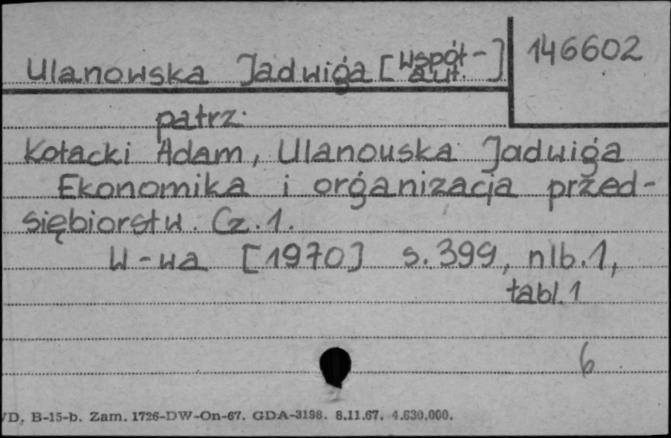 Ulanowska Jadwiga [współ- 146602
aut.]
patrz:
Kołacki Adam, Ulanowska Jadwiga
Ekonomika i organizacja przed-
siębiorstw. Cz. 1.
W-wa [1970] s. 399, nlb. 1,
tabl. 1
6
VD. B-15-b. Zam. 1726-DW-On-67. GDA-3198. 8.11.67. 4.630.000.